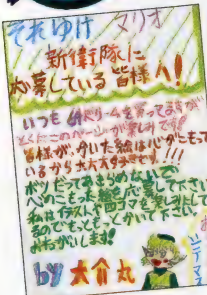 それゆけ マリオ
新衛隊に
大募している皆様へ!
いつも64ドリームを買ってますが
とくにこのページが楽しみです!!
皆様が、かいた絵は心がこもって
いるから大大大好きです!!!!
ボツだってあきらめないで
心のこもった絵を応募して下さい
私はイラストや四コマを楽しみにして
るのでもっともっとかいて下さい。
おねがいします!!
by 大介丸